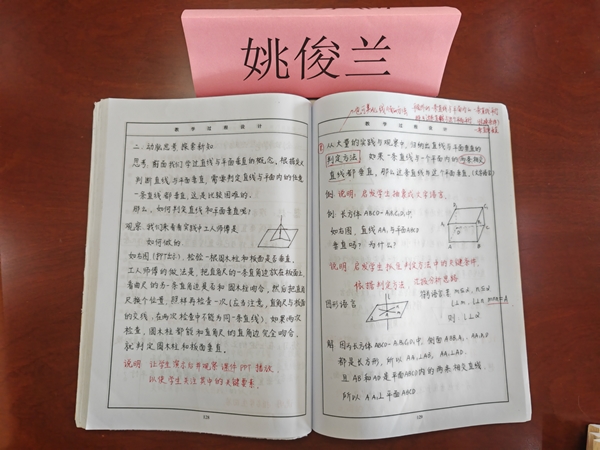 姚俊兰
教学过程设计
二. 动脑思考 探索新知
思考 前面我们学过直线与平面垂直的概念，根据定义
判断直线与平面垂直，需要判定直线与平面内的任意
一条直线都垂直，这是比较困难的。
那么，如何判定直线和平面垂直呢？
观察 我们来看看实践中工人师傅是
如何做的.
如右图（PPT出示），检验一根圆木柱和板面是否垂直.
工人师傅的做法是，把直角尺的一条直角边放在板面上，
看曲尺的另一条直角边是否和圆木柱吻合，然后把直角
尺换个位置，照样再检查一次（应当注意，直角尺与板面
的交线，在两次检查中不能为同一条直线）. 如果两次
检查，圆木柱都能和直角尺的直角边完全吻合，
就判定圆木柱和板面垂直.
说明 让学生演示与并观察课件PPT播放，
以使学生关注其中的关键要素.
128
教学过程设计
从大量的实践与观察中，归纳出直线与平面垂直的
判定方法： 如果一条直线与一个平面内的两条相交
直线都垂直，那么这条直线与这个平面垂直.
例 说明：启发学生抽象成文字语言.
例 长方体ABCD-A₁B₁C₁D₁中，
如右图，直线AA₁与平面ABCD
垂直吗？为什么？
说明 启发学生 判定方法中的关键条件，
依据判定方法，
图形语言：
则 l⊥α
解 因为长方体ABCD-A₁B₁C₁D₁中，侧面ABB₁A₁、AA₁D₁D
都是长方形，所以AA₁⊥AB，AA₁⊥AD.
且AB和AD是平面ABCD内的两条相交直线.
所以 AA₁⊥平面ABCD
129